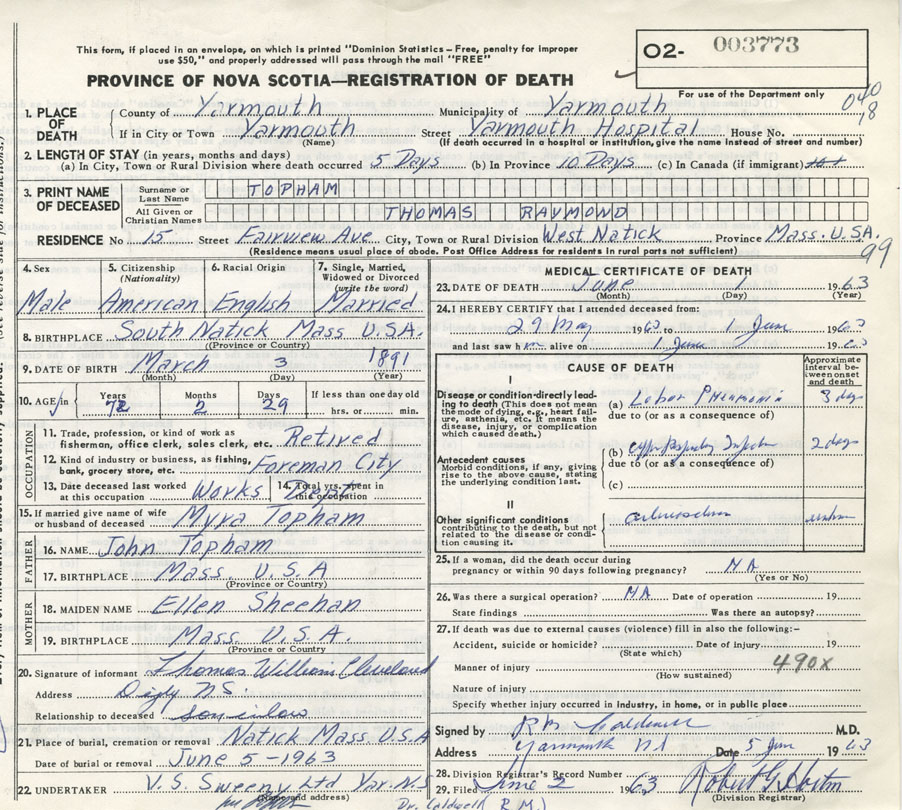 This form, if placed in an envelope, on which is printed "Dominion Statistics – Free, penalty for improper
use $50," and properly addressed will pass through the mail "FREE"
O2- 003773
PROVINCE OF NOVA SCOTIA—REGISTRATION OF DEATH
For use of the Department only
040
18
1. PLACE OF DEATH
County of Yarmouth Municipality of Yarmouth
If in City or Town Yarmouth Street Yarmouth Hospital House No.
(Name) (If death occurred in a hospital or institution, give the name instead of street and number)
2. LENGTH OF STAY (in years, months and days)
(a) In City, Town or Rural Division where death occurred 5 Days (b) In Province 10 Days (c) In Canada (if immigrant)
3. PRINT NAME OF DECEASED
Surname or Last Name TOPHAM
All Given or Christian Names THOMAS RAYMOND
RESIDENCE No 15 Street Fairview Ave City, Town or Rural Division West Natick Province Mass. U.S.A.
(Residence means usual place of abode. Post Office Address for residents in rural parts not sufficient)
99
4. Sex Male
5. Citizenship (Nationality) American
6. Racial Origin English
7. Single, Married, Widowed or Divorced (write the word) Married
8. BIRTHPLACE South Natick Mass U.S.A.
(Province or Country)
9. DATE OF BIRTH March 3 1891
(Month) (Day) (Year)
10. AGE in Years 72 Months 2 Days 29 If less than one day old hrs. or min.
OCCUPATION
11. Trade, profession or kind of work as fisherman, office clerk, sales clerk, etc. Retired
12. Kind of industry or business, as fishing, bank, grocery store, etc. Foreman City
13. Date deceased last worked at this occupation Works
14. Total yrs. spent in this occupation Dept
15. If married give name of wife or husband of deceased Myra Topham
FATHER
16. NAME John Topham
17. BIRTHPLACE Mass. U.S.A
(Province or Country)
MOTHER
18. MAIDEN NAME Ellen Sheehan
19. BIRTHPLACE Mass. U.S.A.
(Province or Country)
20. Signature of informant Thomas William Cleveland
Address Digby NS.
Relationship to deceased son in law
21. Place of burial, cremation or removal Natick Mass. U.S.A
Date of burial or removal June 5-1963
22. UNDERTAKER V.S. Sweeny Ltd Yar. N.S
(Name and address)
MEDICAL CERTIFICATE OF DEATH
23. DATE OF DEATH June 1 1963
(Month) (Day) (Year)
24. I HEREBY CERTIFY that I attended deceased from:
29 May 1963 to 1 June 1963
and last saw him alive on 1 June 1963
CAUSE OF DEATH
Approximate interval between onset and death
I
Disease or condition directly leading to death (This does not mean the mode of dying, e.g., heart failure, asthenia, etc. It means the disease, injury, or complication which caused death.)
(a) Lobar Pneumonia 3 days
due to (or as a consequence of)
Antecedent causes
Morbid conditions, if any, giving rise to the above cause, stating the underlying condition last.
(b) 2 days
due to (or as a consequence of)
(c)
II
Other significant conditions
contributing to the death, but not related to the disease or condition causing it.
25. If a woman, did the death occur during
pregnancy or within 90 days following pregnancy? NA
(Yes or No)
26. Was there a surgical operation? NA Date of operation 19
State findings Was there an autopsy?
27. If death was due to external causes (violence) fill in also the following:–
Accident, suicide or homicide? Date of injury 19
(State which)
Manner of injury 490x
(How sustained)
Nature of injury
Specify whether injury occurred in Industry, in home, or in public place
Signed by R M Caldwell M.D.
Address Yarmouth NS Date 5 Jun 1963
28. Division Registrar's Record Number
29. Filed June 2 1963
(Division Registrar)
Dr. Caldwell R.M.)